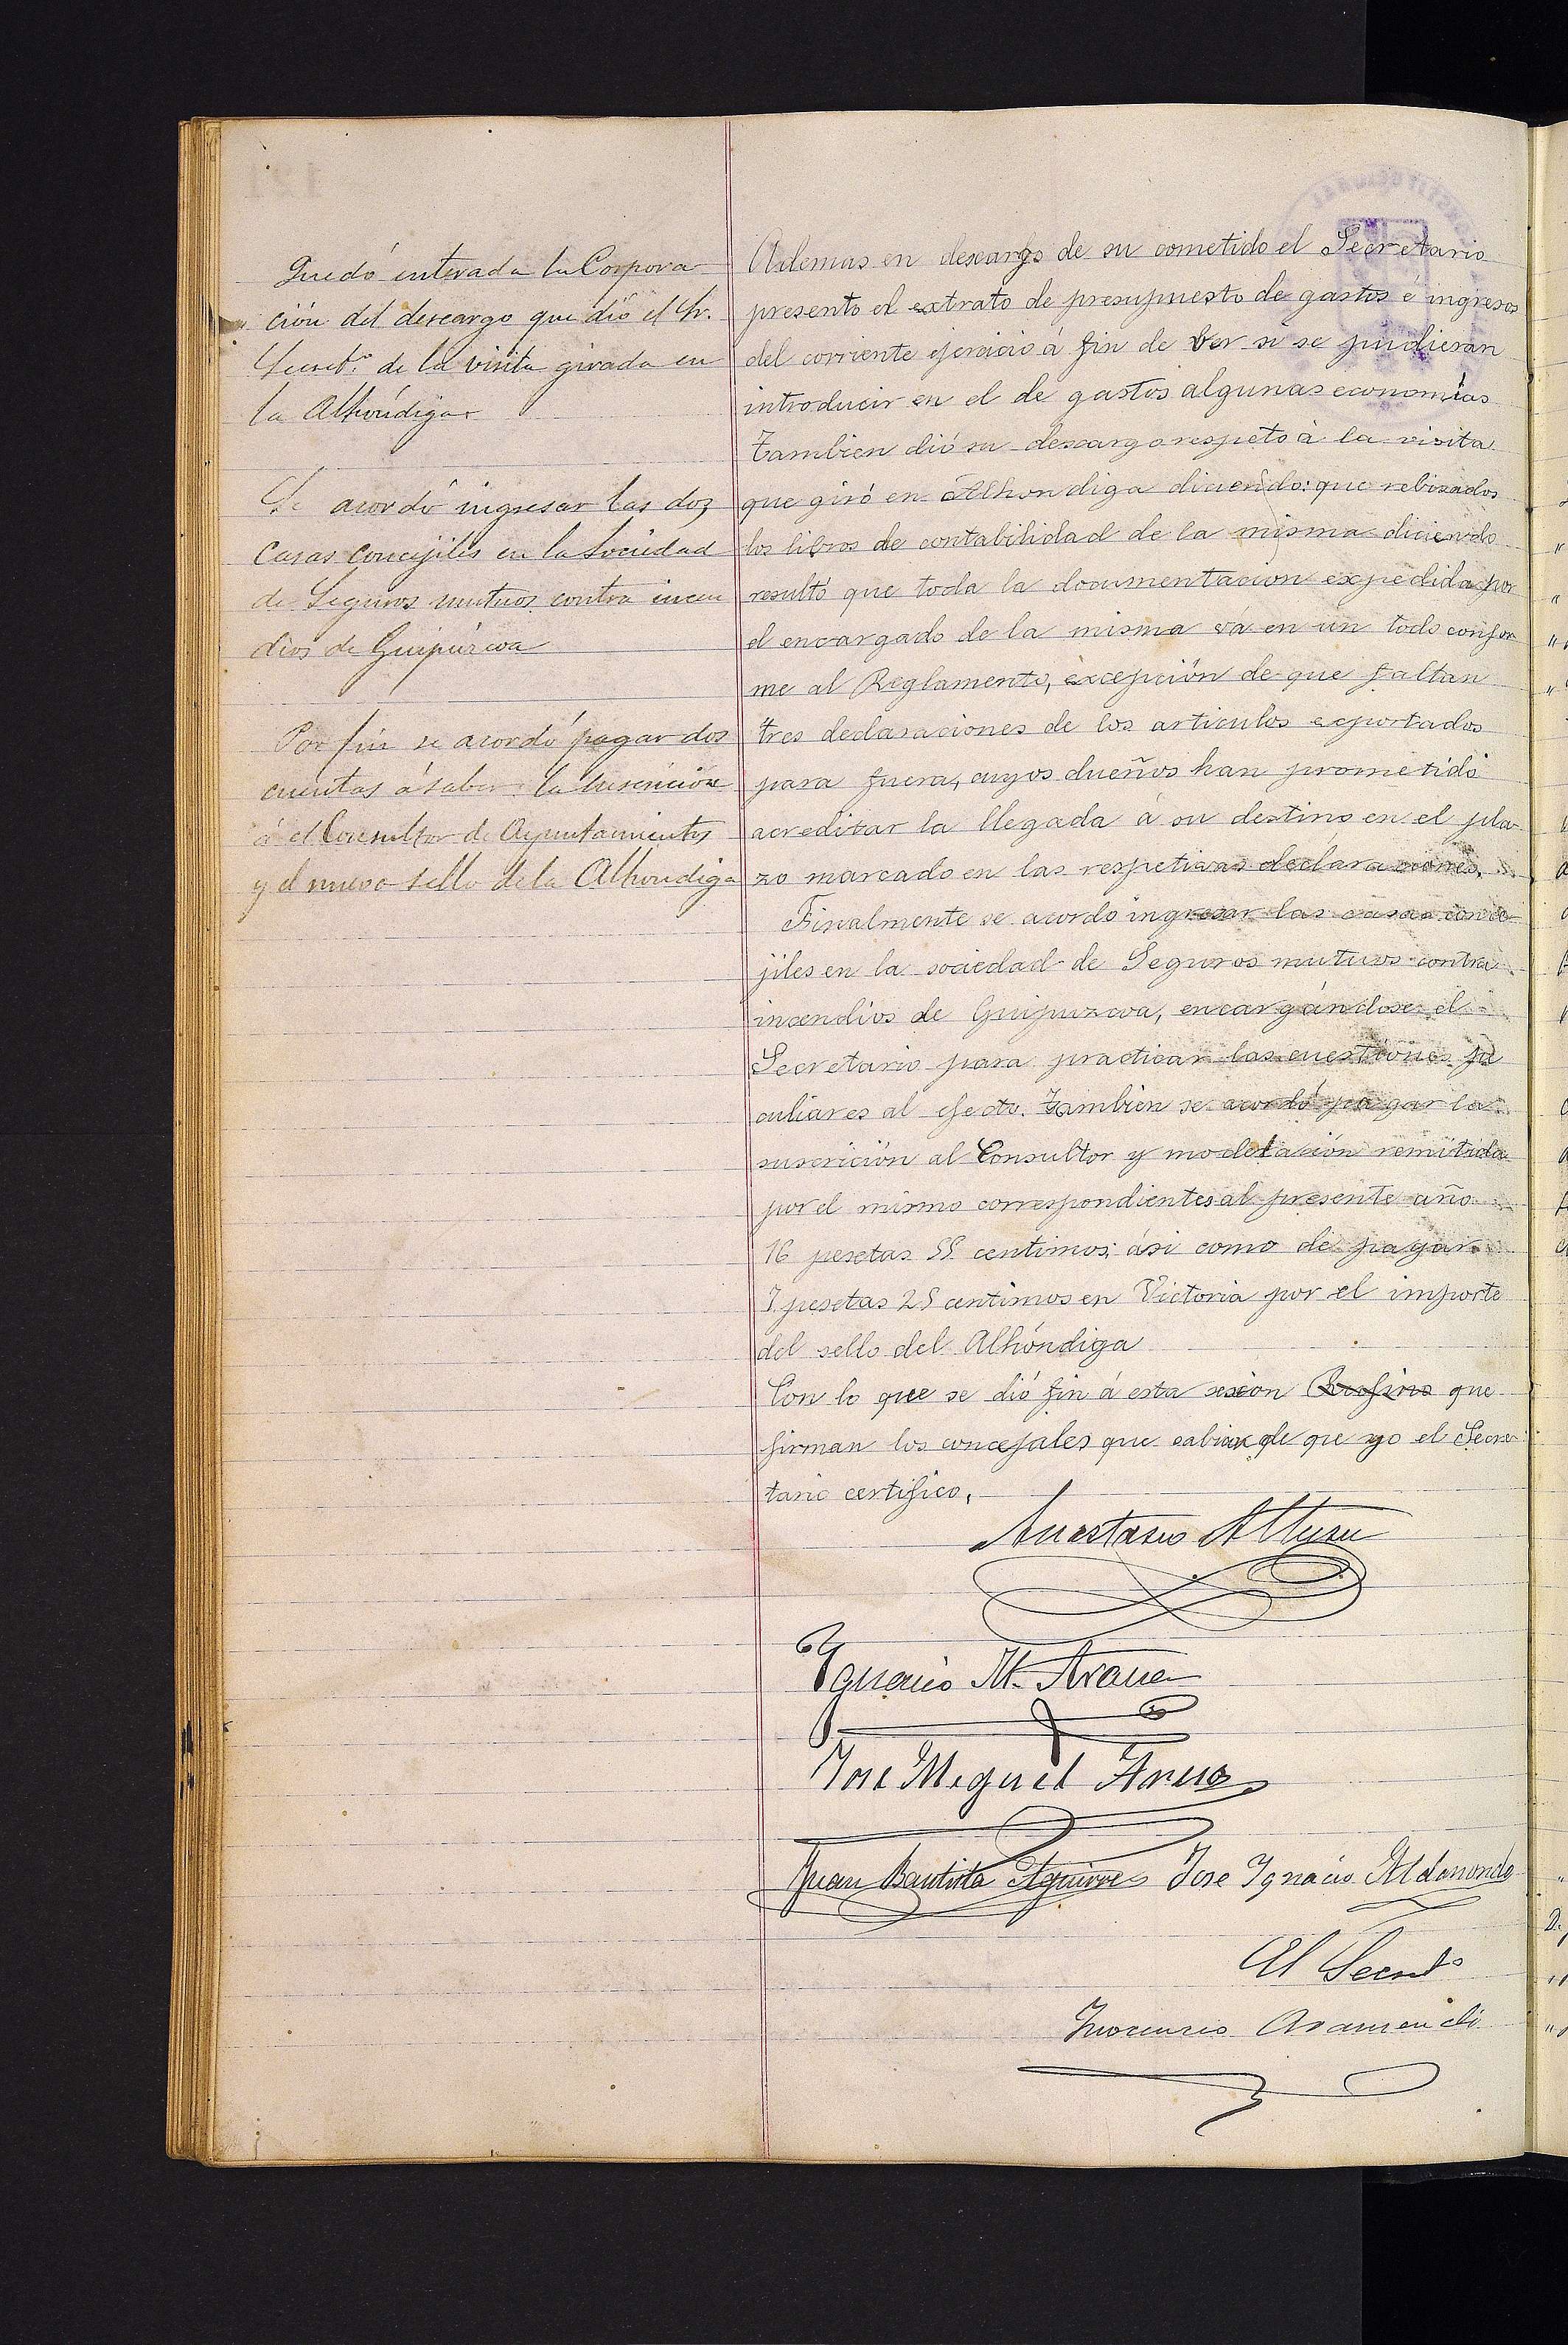 Quedó enterada la Corpora
ción del descargo que dió el Sr.
Secret.º de la visita girada en
la Alhóndiga
Se acordó ingresar las dos
casas concejiles en la Sociedad
de Seguros mutuos contra incen
dios de Guipúzcoa
Por fin se acordó pagar dos
cuentas á saber: la suscrición
á el Consultor de Ayuntamientos
y el nuevo sello de la Alhondiga
Ademas en descargo de su cometido el Secretario
presento el extrato de presupuesto de gastos é ingresos
del corriente ejercicio á fin de ver si se pudieran
introducir en el de gastos algunas economías
Tambien dió su descargo respeto à la visita
que giró en Alhondiga diciendo: que rebizados
los libros de contabilidad de la misma diciendo
resultó que toda la documentacion expedida por
el encargado de la misma vá en un todo confor
me al Reglamento, excepción de que faltan
tres declaraciones de los articulos exportados
para fuera, cuyos dueños han prometido
acreditar la llegada á su destino en el pla-
zo marcado en las respetivas declaraciones.
Finalmente se acordo ingresar las casas conce-
jiles en la sociedad de Seguros mutuos contra
incendios de Guipuzcoa, encargándose el
Secretario para practicar las cuestiones pe
culiares al efecto. Tambien se acordó pagar la
suscrición al Consultor y modelación remitida
por el mismo correspondientes al presente año
16 pesetas 55 centimos; ási como de pagar
7 pesetas 25 centimos en Victoria por el importe
del sello del Alhóndiga
Con lo que se dió fin á esta sesion Rufino que
firman los concejales que sabian de que yo el Secre-
tario certifico.
Anastasio Altuna
Ygnacio M. Arana
José Miguel Arano
Juan Bautista Aguirre José Ygnacio Aldanondo
El Secret.º
Inocencio Aramendi